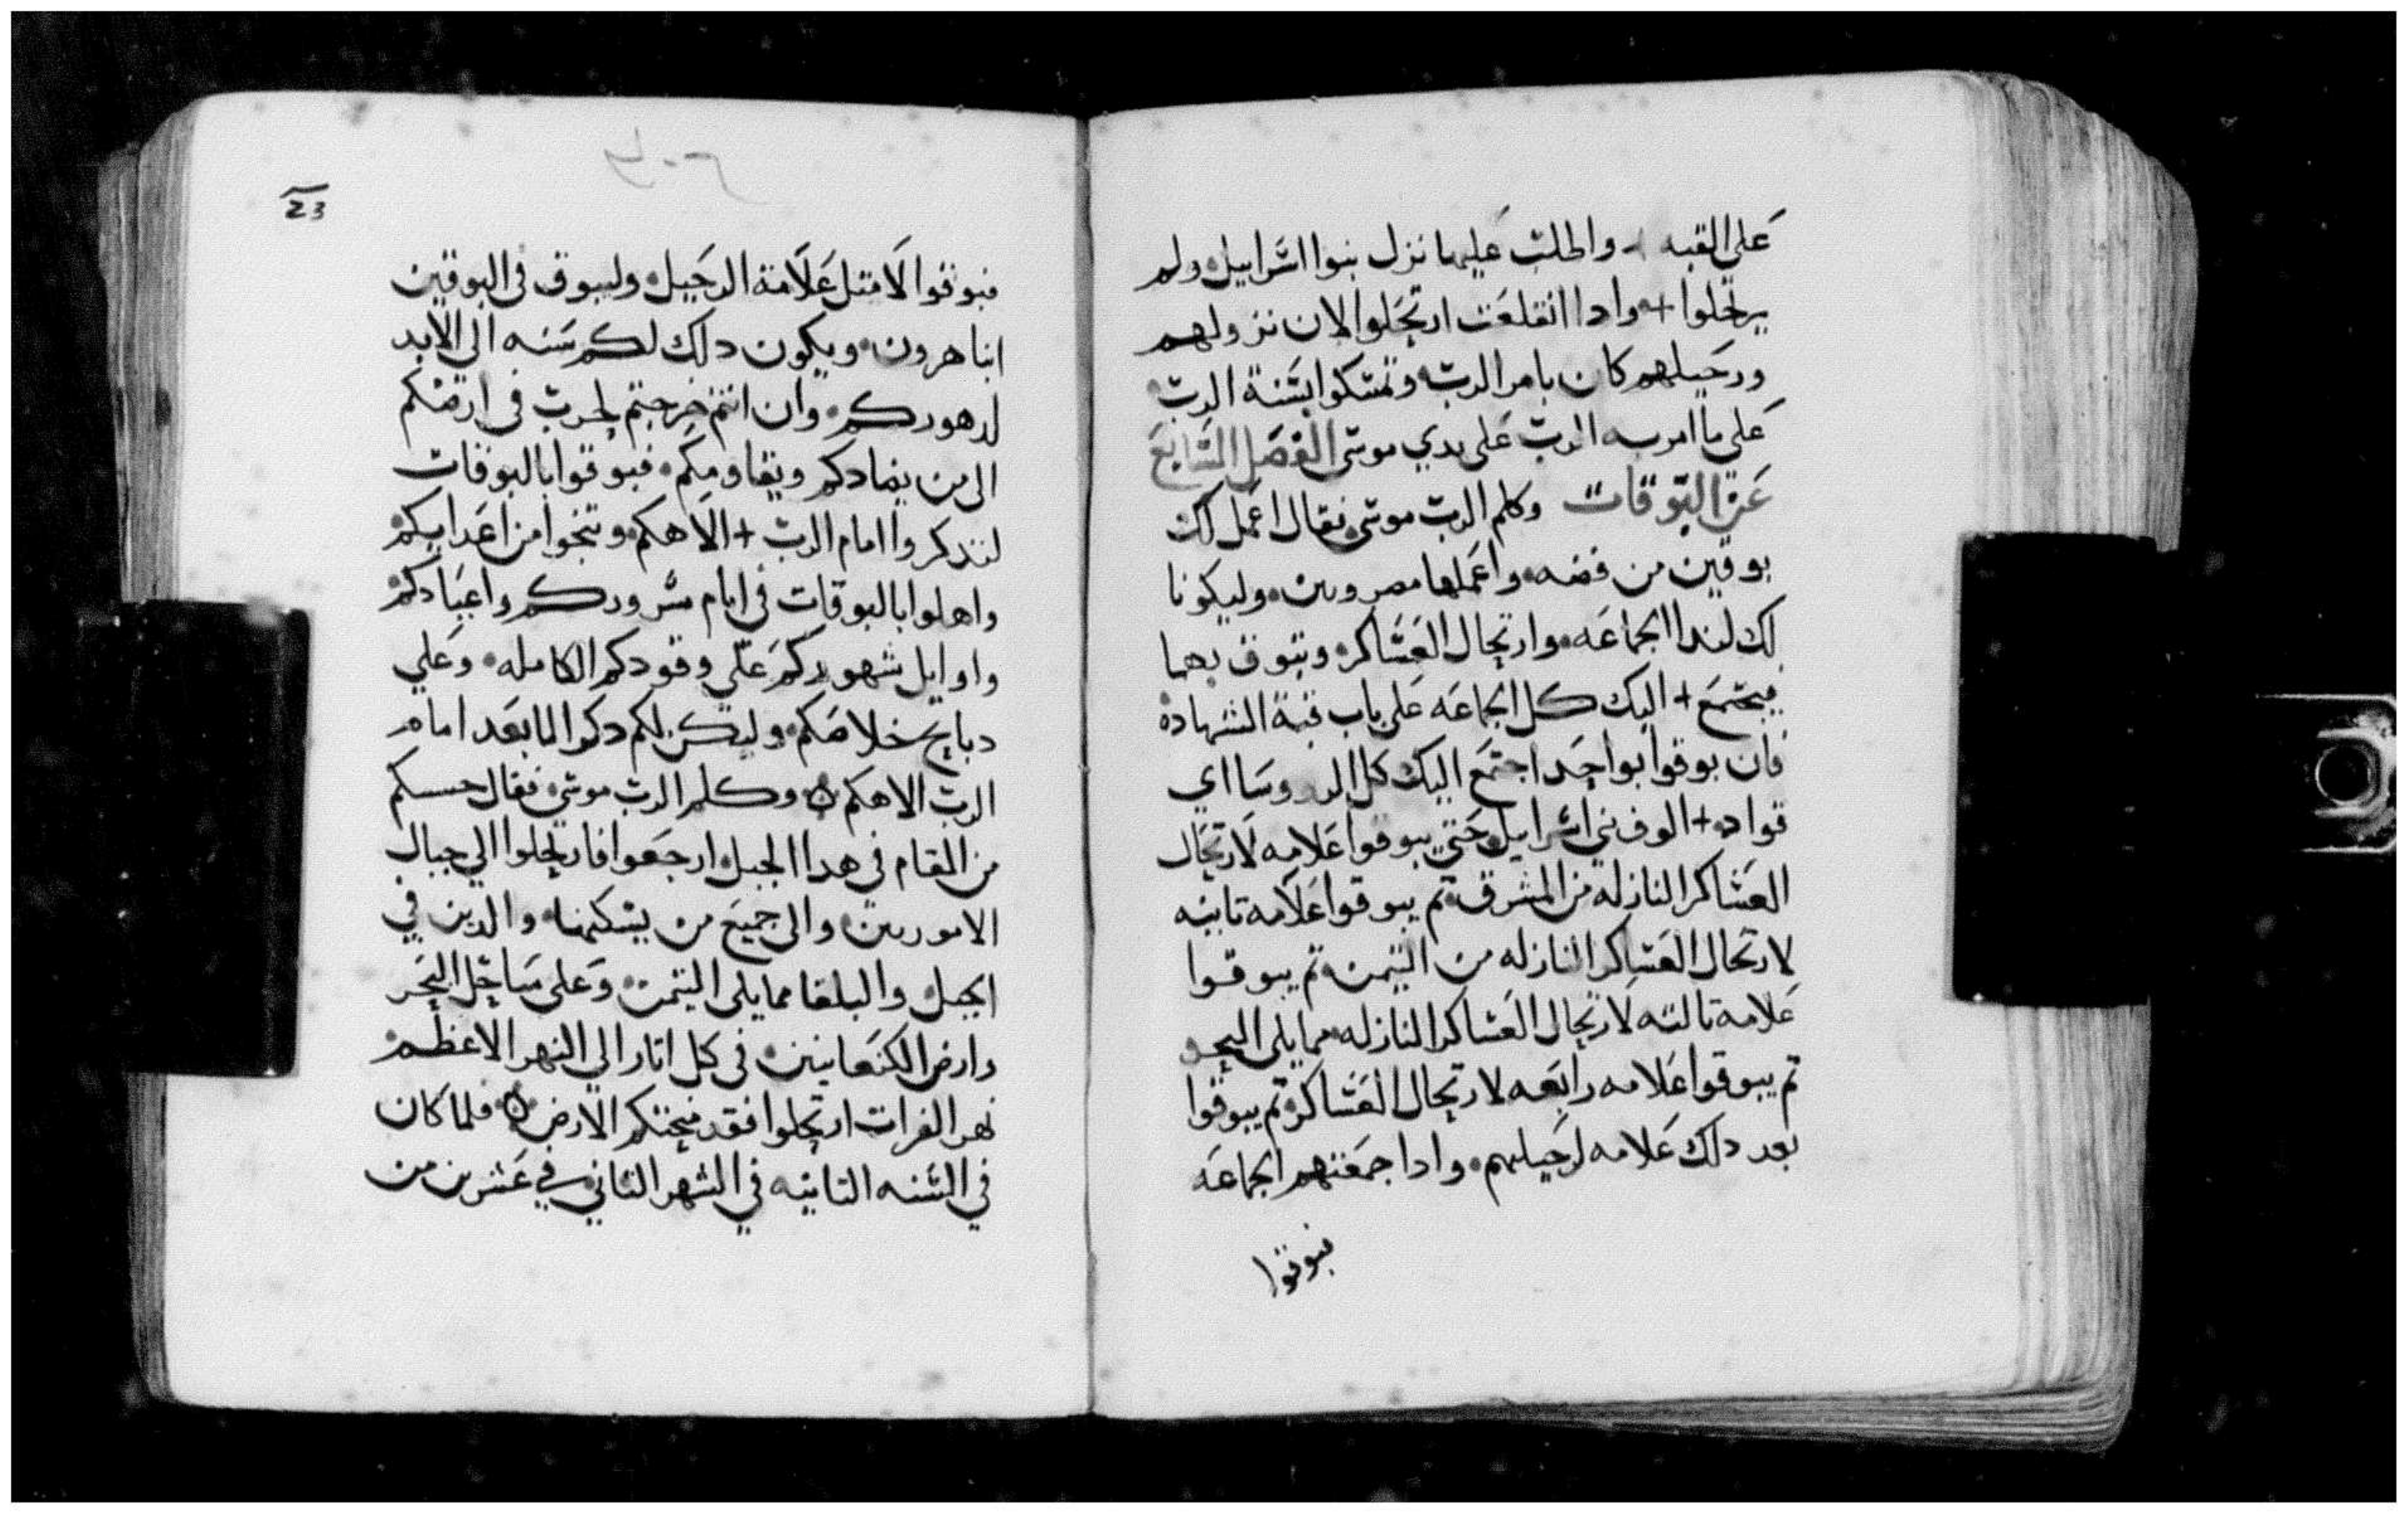 على القبه + واظلت عليها نزل بنوا اسراييل ولم
يرتحلوا + وادا انقلعت ارتحلوا لان نزولهم
ورحيلهم كان بامر الرب وتمسكوا بسنة الرب
على ما امر به الرب على يدي موسى الفصل السابع
عن البوقات وكلم الرب موسى فقال اعمل لك
بوقين من فضه واعملها مصروبين وليكونا
لك لندا الجماعه وارتحال العساكر وتبوق بهما
فيجتمع + اليك كل الجماعه على باب قبة الشهاده
فان بوقوا بواحد اجتمع اليك كل الروسا اي
قواد + الوف بني اسراييل حتي يبوقوا علامه لارتحال
العساكر النازله من المشرق تم يبوقوا علامه تانيه
لارتحال العساكر النازله من التيمن تم يبوقوا
علامة تالته لارتحال العساكر النازله مما يلي البحر
تم يبوقوا علامه رابعه لارتحال العساكر تم يبوقوا
بعد دلك علامه لرحيلهم وادا جمعتهم الجماعه
فبوقوا
23
فبوقوا لا متل علامة الرحيل وليبوق في البوقين
ابنا هرون ويكون دلك لكم سنه الى الابد
لدهوركم وان انتم خرجتم لحرب في ارضكم
الى من يضادكم ويقاومكم فبوقوا بالبوقات
لتدكروا امام الرب + الاهكم وتنجوا من اعدايكم
واهلوا بالبوقات في ايام سروركم واعيادكم
واوايل شهوركم علي وقودكم الكامله وعلي
دبايح خلاصكم وليكن لكم دكرا لما بعد امام
الرب الاهكم وكلم الرب موسى فقال حسبكم
من المقام في هدا الجبل ارجعوا فارتحلوا الي جبال
الاموريين والى جميع من يسكنها والدين في
الجبل والبلقا مما يلي التيمن وعلى ساحل البحر
وارض الكنعانيين في كل اتار الي النهر الاعظم
نهر الفرات ارتحلوا فقد منحتكم الارض فلما كان
في السنه التانيه في الشهر التاني في عشرين من